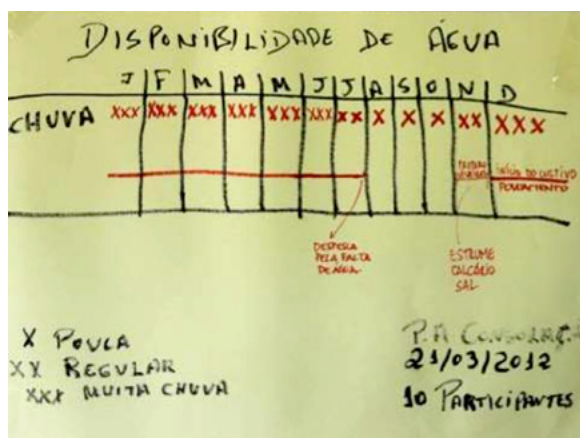 DISPONIBILIDADE DE ÁGUA
J F M A M J J A S O N D
CHUVA XXX XXX XXX XXX XXX XXX XX X X X XX XXX
INÍCIO DO CULTIVO
POVOAMENTO
DESPESCA
PELA FALTA
DE ÁGUA
ESTRUME
CALCÁRIO
SAL
X POUCA
XX REGULAR
XXX MUITA CHUVA
P.A
21/03/2012
10 PARTICIPANTES